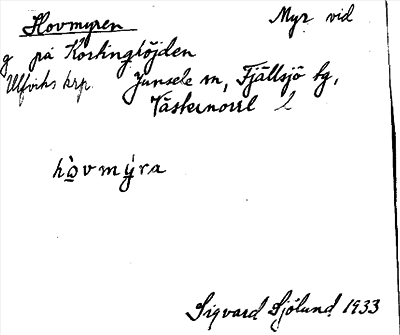 Hovmyren Myr vid
g på Korkinghöjden
Ulfviks krp. Junsele sn, Fjällsjö tg,
Västernorrl l
hòvmýra
Sigvard Sjölund 1933